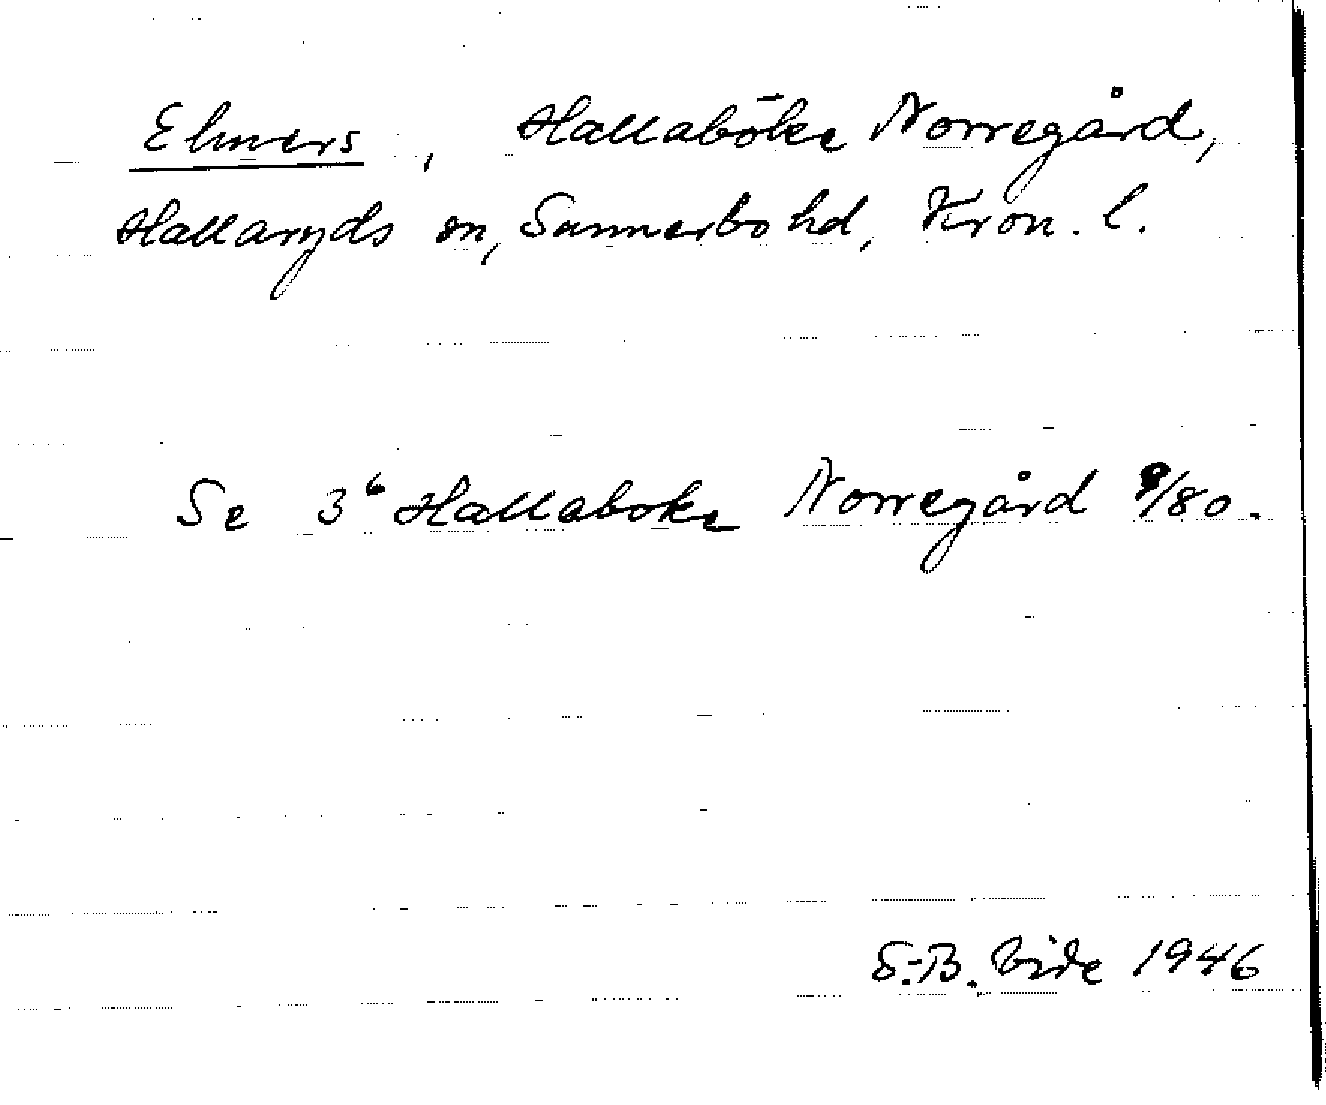 Elmers, Hallaböke Norregård,
Hallaryds sn, Sunnerbo hd, Kron. l.
Se 3⁶ Hallaboke Norregård 9/80.
S.-B. Vide 1946